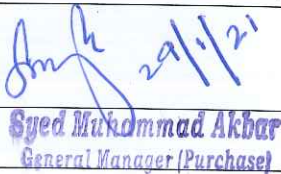 29/1/21
Syed Muhammad Akbar
General Manager (Purchase)